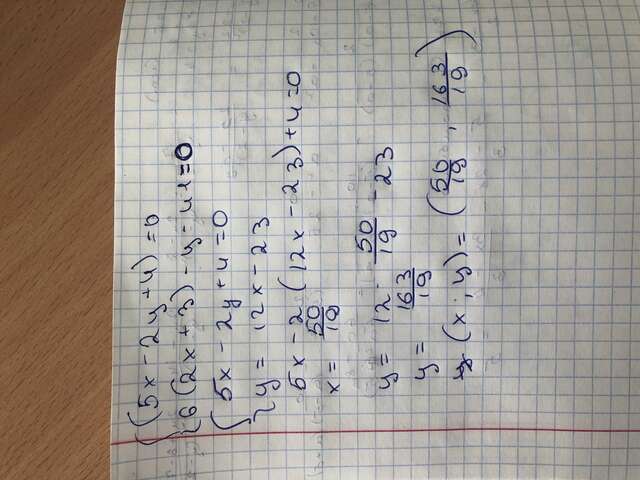 {(5x-2y+4)=0
{6(2x+3)-y-41=0
{5x-2y+4=0
{y=12x-23
5x-2(12x-23)+4=0
x=50/19
y=12·50/19-23
y=163/19
(x;y)=(50/19,163/19)